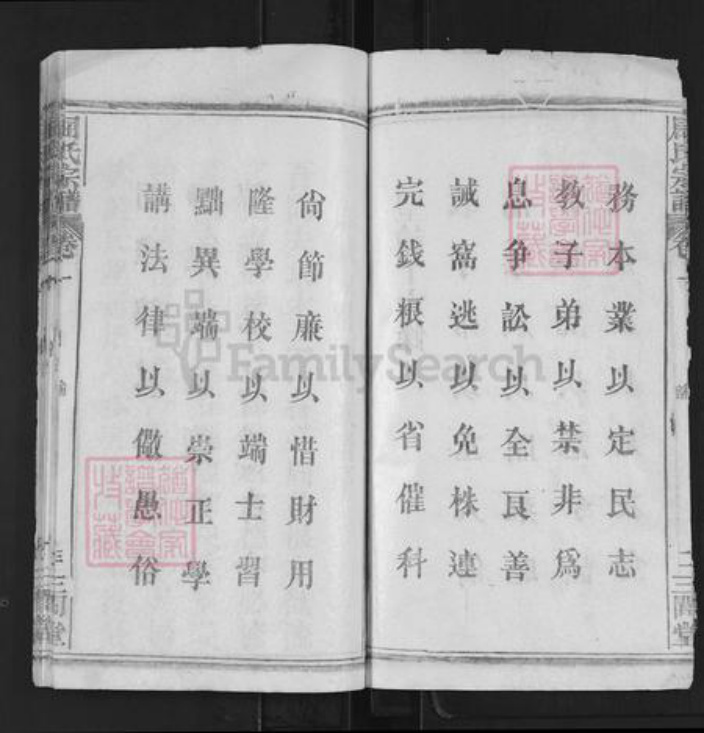 周氏宗譜
卷一
務本業以定民志
教子弟以禁非爲
息争訟以全良善
誡窩逃以免株連
完錢粮以省催科
尙節廉以惜財用
隆學校以端士習
黜異端以崇正學
講法律以儆愚俗
周氏宗譜
卷一
FamilySearch